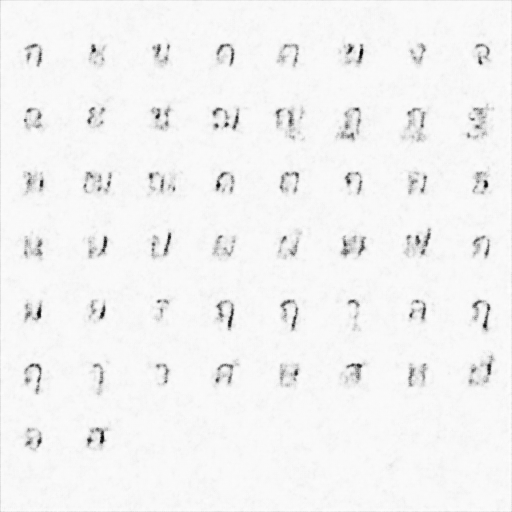 ก ค ค ฆ ง จ
ฉ ช ซ ฌ ญ ฎ ฏ ฐ
ฑ ฒ ณ ด ต ถ ธ
น ป ผ ฝ พ ฟ ภ
ม ย ร ฤ ฤ ๅ ล ฦ
ฦ ๅ ว ศ ษ ส ห ฬ
อ ฮ